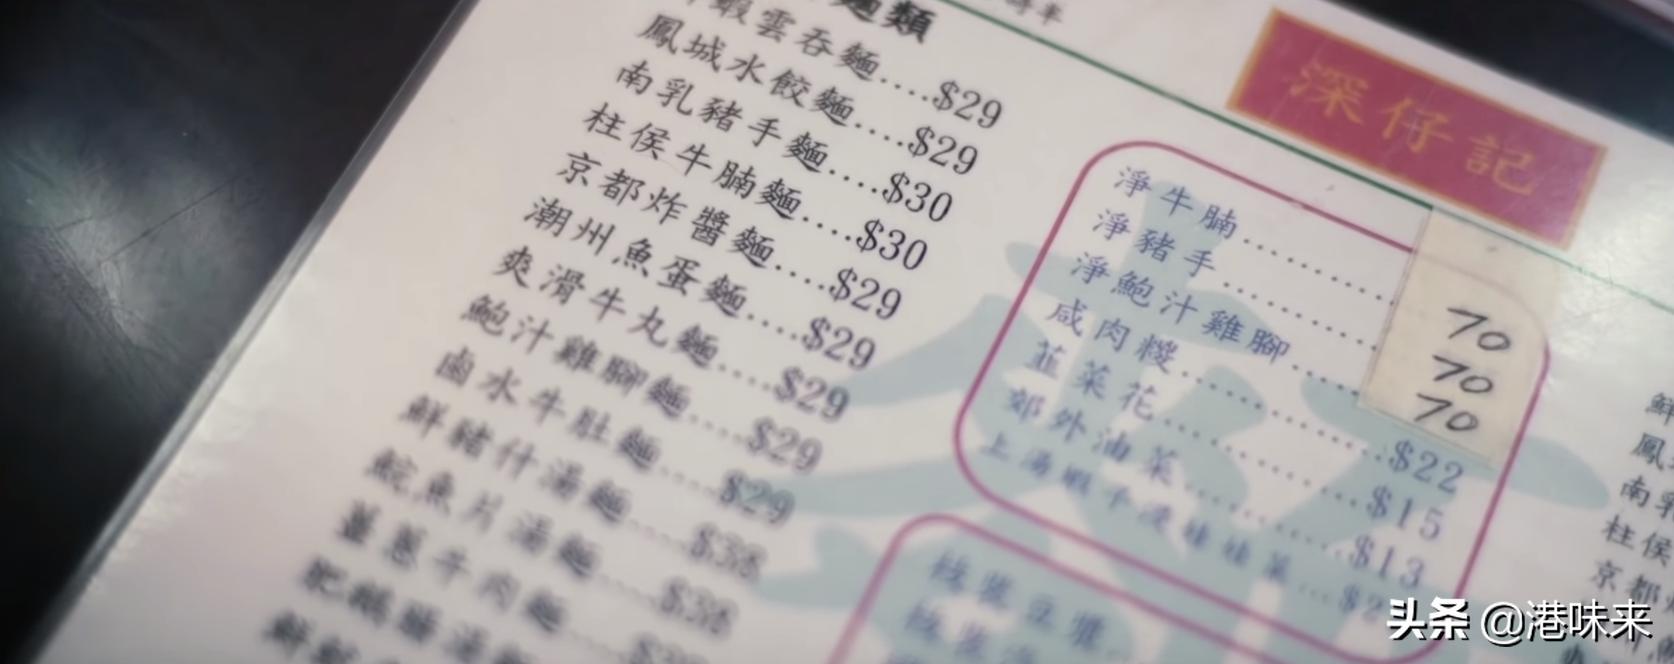 麵類
蝦雲吞麵....$29
鳳城水餃麵....$29
南乳豬手麵....$30
柱侯牛腩麵....$30
京都炸醬麵....$29
潮州魚蛋麵....$29
爽滑牛丸麵....$29
鮑汁雞腳麵....$29
鹵水牛肚麵....$29
鮮豬什湯麵....$36
鯇魚片湯麵....$36
薑蔥牛肉麵
深仔記
淨牛腩
淨豬手
淨鮑汁雞腳
70
70
70
咸肉糉....$22
韮菜花....$15
郊外油菜....$13
上湯蝦子浸娃娃菜
鳳
南乳
柱侯
京都
头条 @港味来